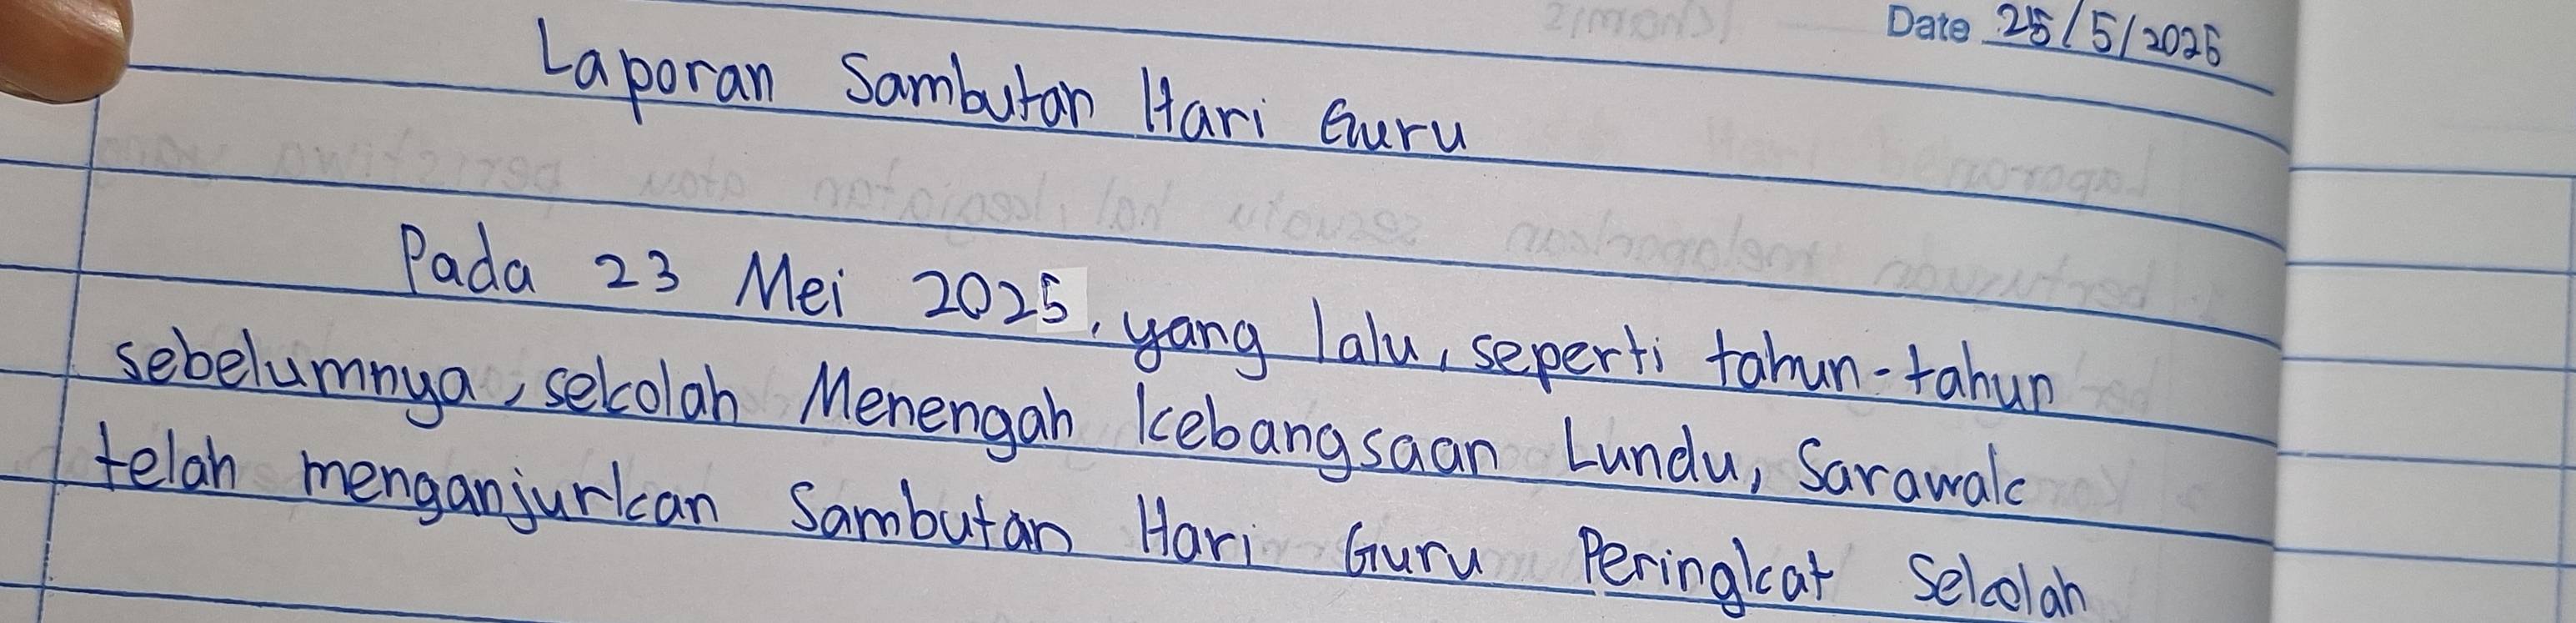 Date 25/5/2025
Laporan Sambutan Hari Guru
Pada 23 Mei 2025, yang lalu, seperti tahun-tahun
sebelumnya, sekolah Menengah Kebangsaan Lundu, Sarawak
telah menganjurkan Sambutan Hari Guru Peringkat Sekolah